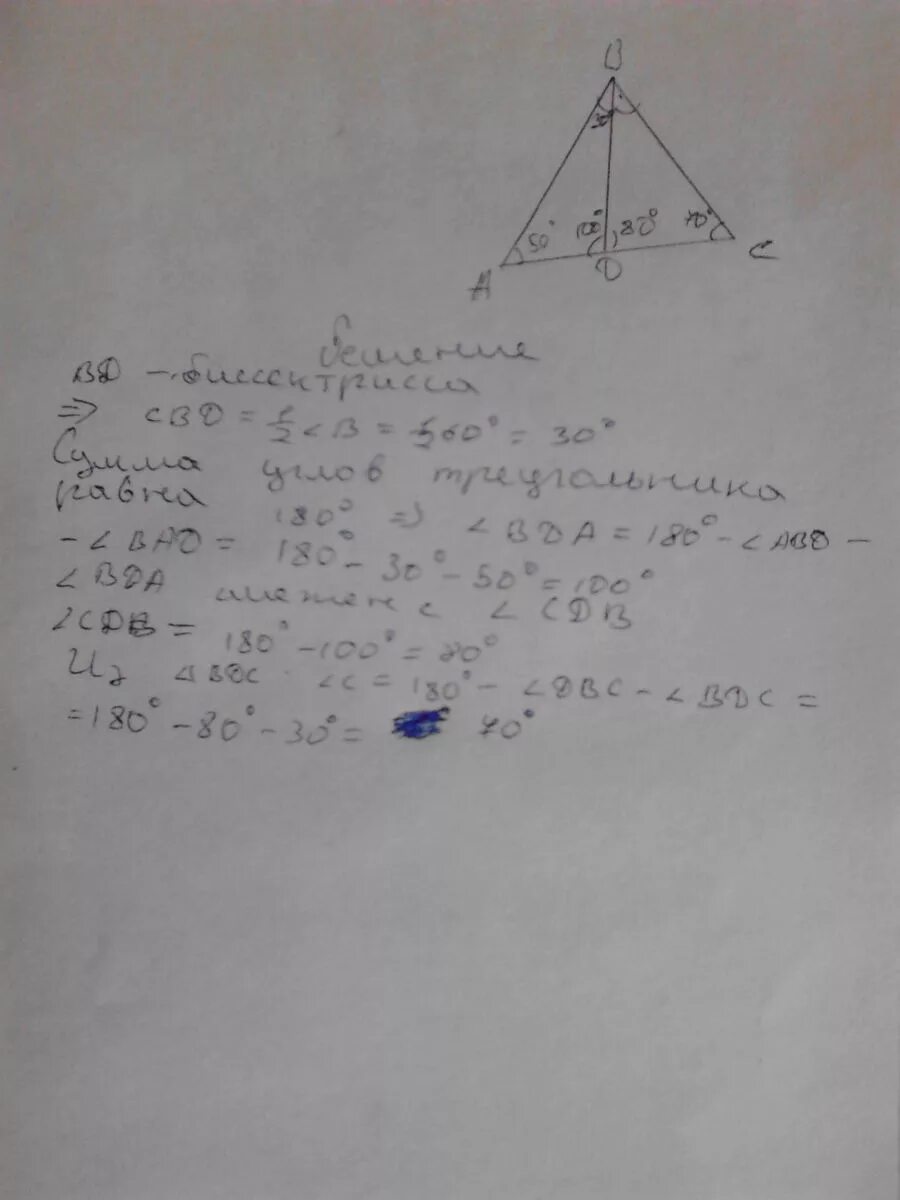 B
30
50°
100°
80°
70°
A
D
C
Решение
BD - биссектрисса
=> CBD = 1/2 ∠B = 1/2 60° = 30°
Сумма углов треугольника
равна 180° => ∠BDA = 180° - ∠ABD -
- ∠BAD = 180° - 30° - 50° = 100°
∠BDA смежен с ∠CDB
∠CDB = 180° - 100° = 80°
Из △BDC ∠C = 180° - ∠DBC - ∠BDC =
= 180° - 80° - 30° = 70°